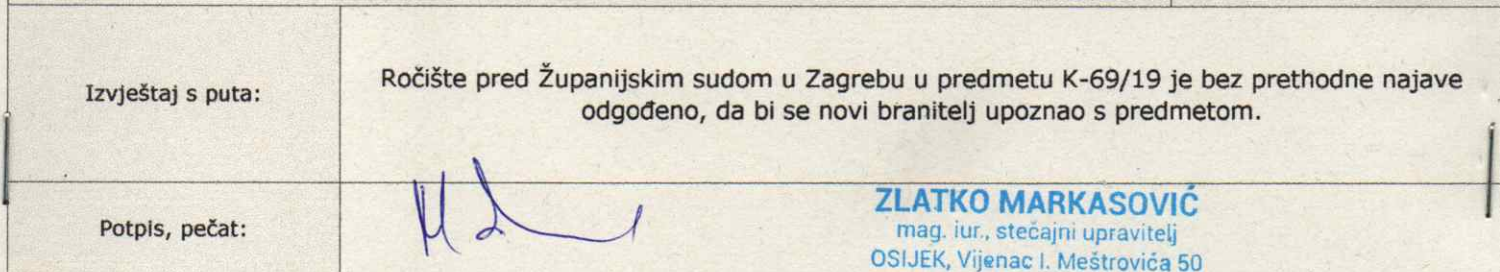 Izvještaj s puta:
Ročište pred Županijskim sudom u Zagrebu u predmetu K-69/19 je bez prethodne najave
odgođeno, da bi se novi branitelj upoznao s predmetom.
Potpis, pečat:
ZLATKO MARKASOVIĆ
mag. iur., stečajni upravitelj
OSIJEK, Vijenac I. Meštrovića 50